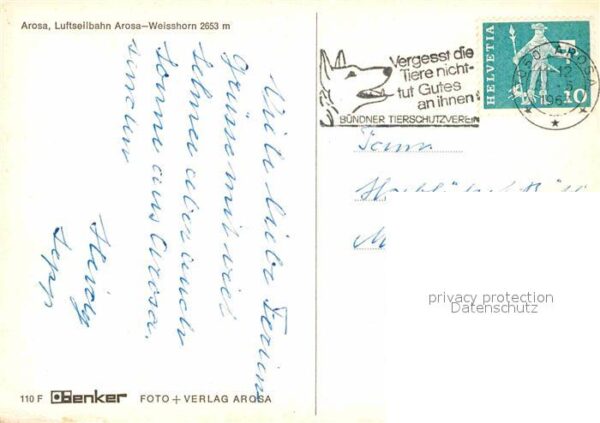 Arosa, Luftseilbahn Arosa—Weisshorn 2653 m
Viele liebe Ferien
grüsse mit viel
Sonne aus Arosa.
Heidy
Sepp
110 F Benker FOTO + VERLAG AROSA
Vergesst die
Tiere nicht-
tut Gutes
an ihnen!
BÜNDNER TIERSCHUTZVEREIN
HELVETIA
10
AROSA
privacy protection
Datenschutz